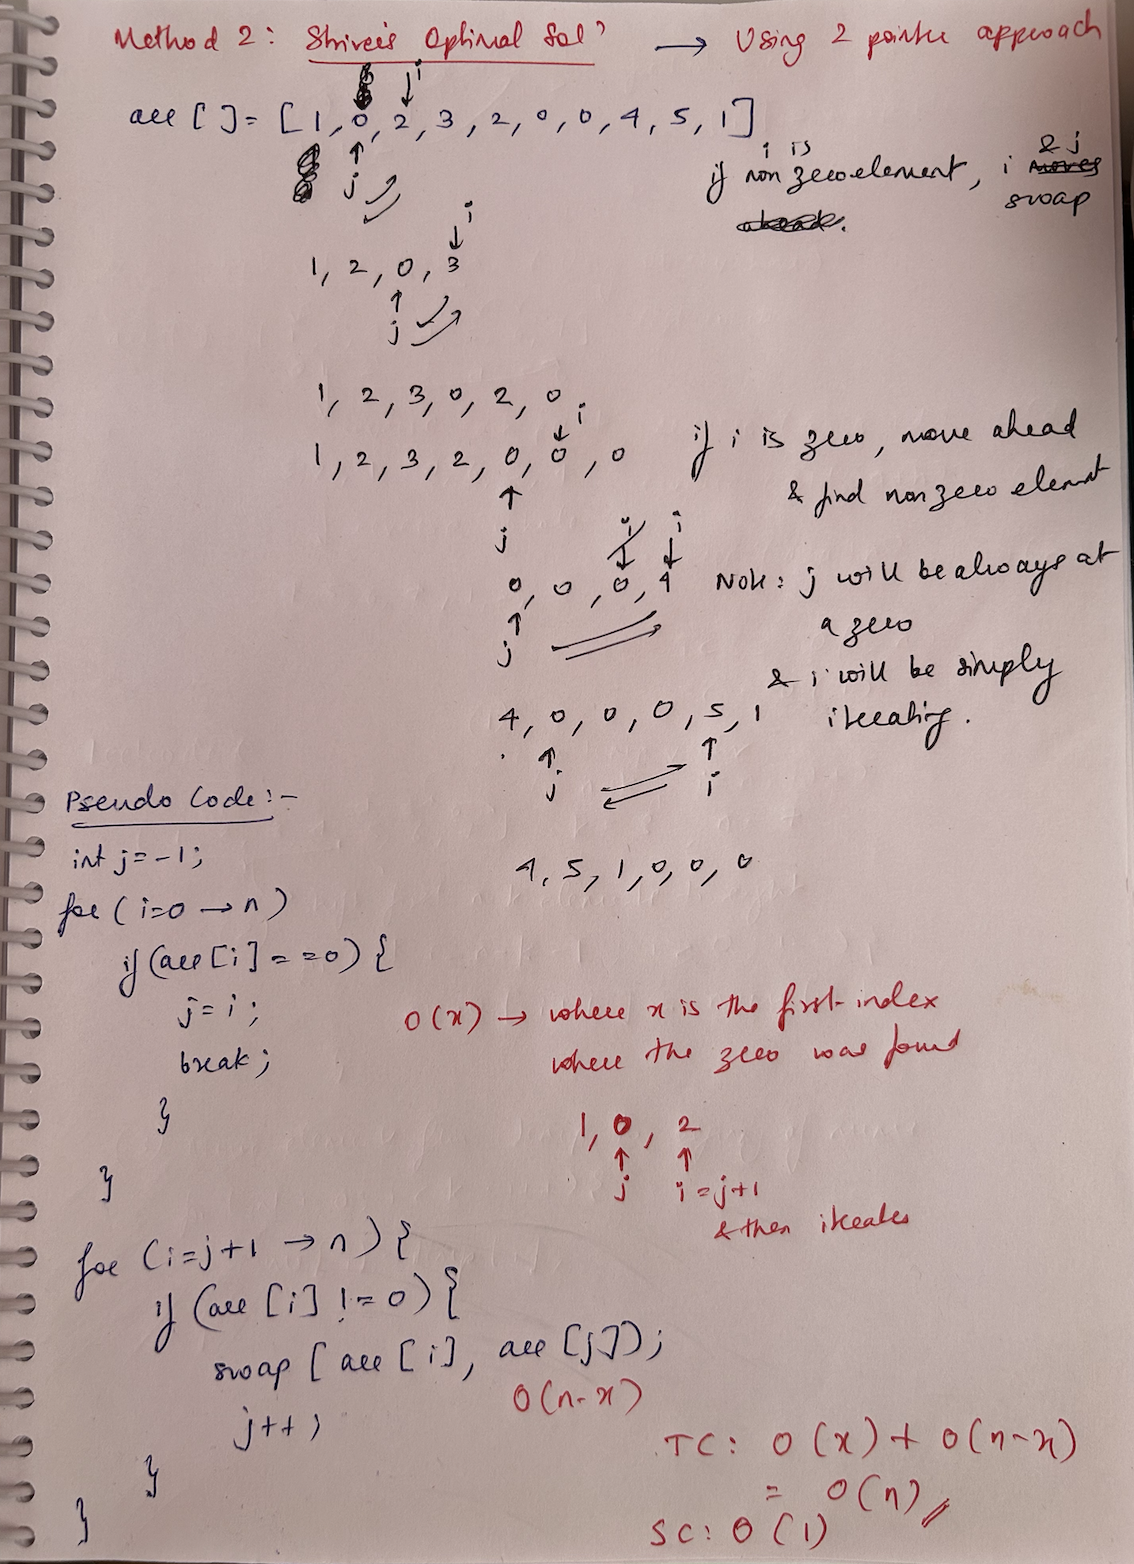 Method 2: Striver's Optimal Sol^n → Using 2 pointer approach
i
arr [ ] = [1, 0, 2, 3, 2, 0, 0, 4, 5, 1]
j
if i is non zero element, i & j swap
i
1, 2, 0, 3
j
1, 2, 3, 0, 2, 0
i
1, 2, 3, 2, 0, 0, 0
j
if i is zero, move ahead
& find non zero element
i i
0, 0, 0, 4
j
Note: j will be always at
a zero
& i will be simply
iterating.
4, 0, 0, 0, 5, 1
j i
4, 5, 1, 0, 0, 0
Pseudo Code:-
int j = -1;
for (i=0 → n)
if (arr[i] == 0) {
j = i;
break;
}
}
O(x) → where x is the first index
where the zero was found
1, 0, 2
j i = j+1
& then iterates
for (i=j+1 → n) {
if (arr [i] != 0) {
swap [arr [i], arr [j]);
j++;
}
}
O(n-x)
TC: O(x) + O(n-x)
= O(n)
SC: O(1)